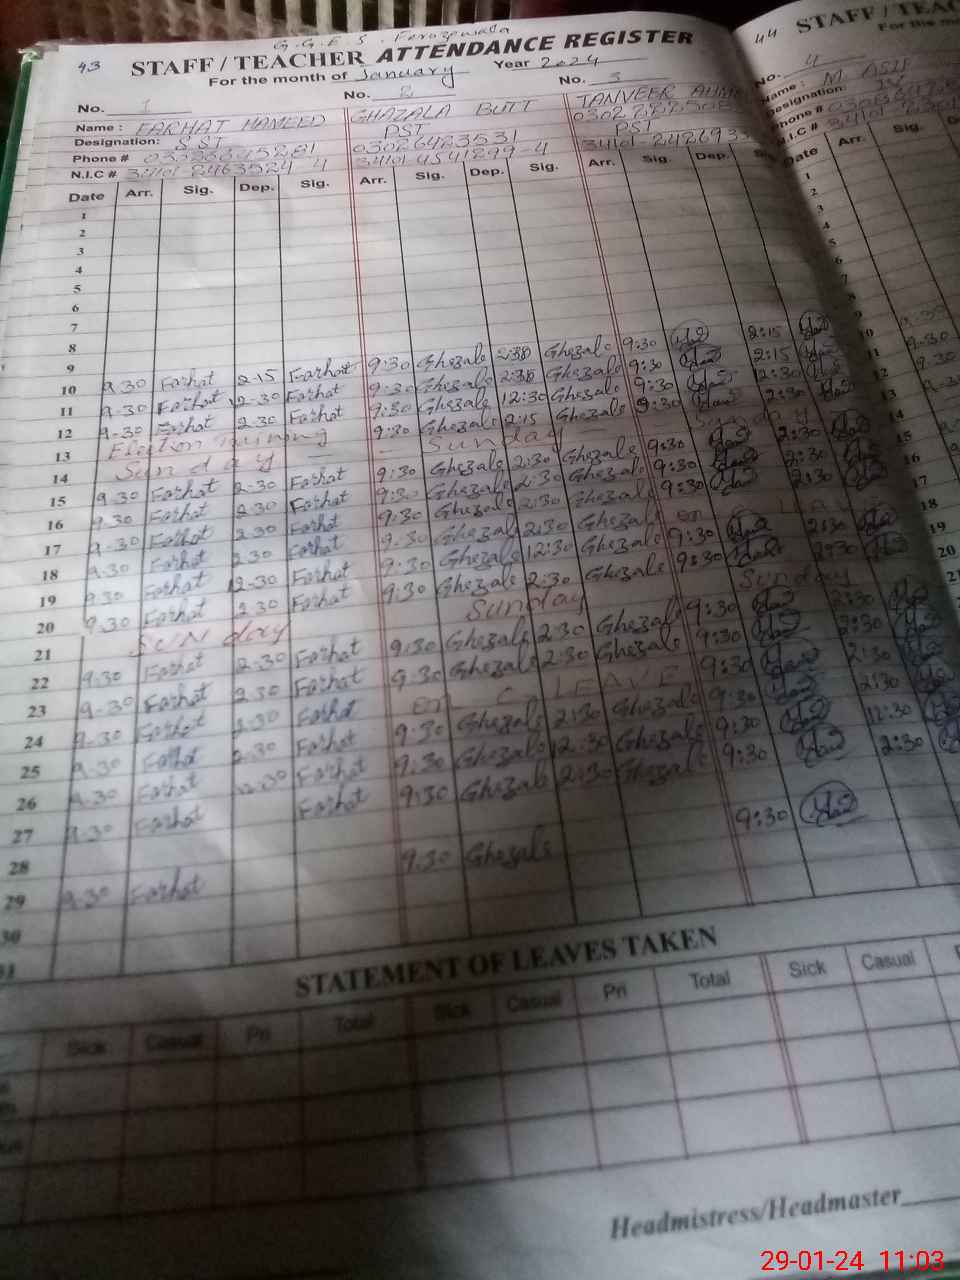 G.G.E.S. Ferozpwala
43 STAFF / TEACHER ATTENDANCE REGISTER
For the month of January Year 2024
No. 1 No. 2 No. 3
Name : FARHAT HAMEED GHAZALA BUTT TANVEER
Designation: SST PST PST
Phone # 03026423531
N.I.C # 34101-2463524-4 34101-4541299-4 34101-242693
Date Arr. Sig. Dep. Sig. Arr. Sig. Dep. Sig. Arr. Sig. Dep.
1
2
3
4
5
6
7
8
9 9:30 Ghezale 2:30 Ghezale 9:30 2:15
10 9.30 Farhat 2.15 Farhat 9:30 Ghezale 2:30 Ghezale 9:30 2:15
11 9.30 Farhat 12.30 Farhat 9:30 Ghezale 12:30 Ghezale 9:30 12:30
12 9.30 Farhat 2.30 Farhat 9:30 Ghezale 2:15 Ghezale 9:30 2:30
13 Election Training
14 Sunday Sunday Sunday
15 9.30 Farhat 2.30 Farhat 9:30 Ghezale 2:30 Ghezale 9:30 2:30
16 9.30 Farhat 2.30 Farhat 9:30 Ghezale 2:30 Ghezale 9:30 2:30
17 9.30 Farhat 2.30 Farhat 9:30 Ghezale 2:30 Ghezale 9:30 2:30
18 9.30 Farhat 2.30 Farhat 9:30 Ghezale 2:30 Ghezale on
19 9.30 Farhat 12.30 Farhat 9:30 Ghezale 12:30 Ghezale 9:30 2:30
20 9.30 Farhat 2.30 Farhat 9:30 Ghezale 2:30 Ghezale 9:30 2:30
21 Sunday Sunday Sunday
22 9.30 Farhat 2.30 Farhat 9:30 Ghezale 2:30 Ghezale 9:30 2:30
23 9.30 Farhat 2.30 Farhat 9:30 Ghezale 2:30 Ghezale 9:30 2:30
24 9.30 Farhat 2.30 Farhat on C LEAVE 9:30 2:30
25 9.30 Farhat 2.30 Farhat 9:30 Ghezale 2:30 Ghezale 9:30 2:30
26 9.30 Farhat 12.30 Farhat 9:30 Ghezale 12:30 Ghezale 9:30 12:30
27 9.30 Farhat Farhat 9:30 Ghezale 2:30 Ghezale 9:30 2:30
28
29 9.30 Farhat 9.30 Ghezale 9:30
30
31
STATEMENT OF LEAVES TAKEN
Sick Casual Pri Total Sick Casual Pri Total Sick Casual
Headmistress/Headmaster
44 STAFF / TEAC
For the mo
No. 4
Name: M ASIF
Designation:
Phone #
N.I.C # 34101
Date Arr. Sig.
1
2
3
4
5
6
7
8
9
10
11
12
13
14
15
16
17
18
19
20
29-01-24 11:03